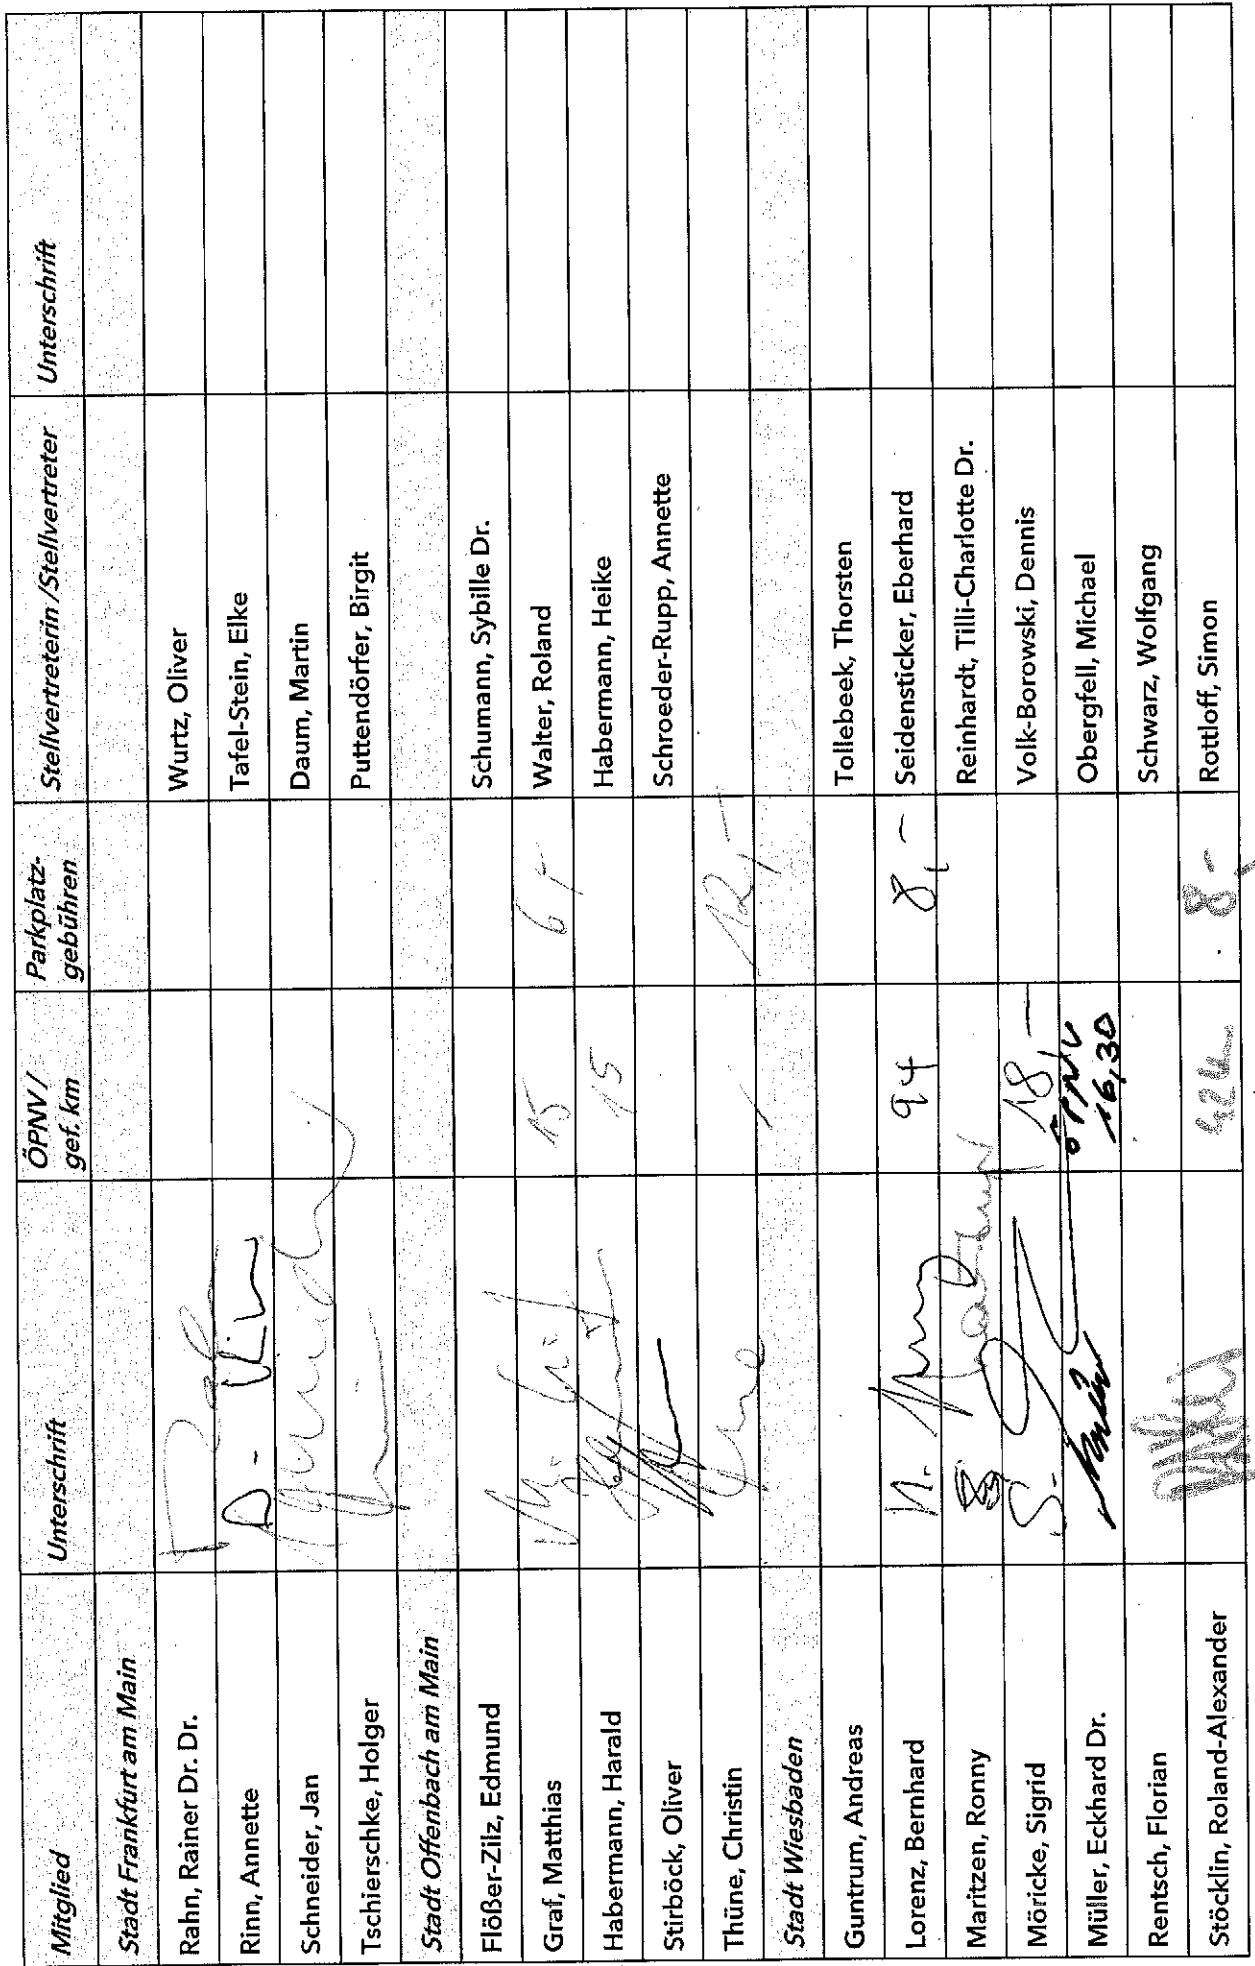 Mitglied Unterschrift ÖPNV / gef. km Parkplatz-gebühren Stellvertreterin /Stellvertreter Unterschrift
Stadt Frankfurt am Main
Rahn, Rainer Dr. Dr. Wurtz, Oliver
Rinn, Annette A. Rinn Tafel-Stein, Elke
Schneider, Jan Daum, Martin
Tschierschke, Holger Puttendörfer, Birgit
Stadt Offenbach am Main
Flößer-Zilz, Edmund Schumann, Sybille Dr.
Graf, Matthias 15 6,- Walter, Roland
Habermann, Harald 15 Habermann, Heike
Stirböck, Oliver Schroeder-Rupp, Annette
Thüne, Christin 12,-
Stadt Wiesbaden
Guntrum, Andreas Tollebeek, Thorsten
Lorenz, Bernhard 94 8,- Seidensticker, Eberhard
Maritzen, Ronny Reinhardt, Tilli-Charlotte Dr.
Möricke, Sigrid 18,- Volk-Borowski, Dennis
Müller, Eckhard Dr. ÖPNV 16,30 Obergfell, Michael
Rentsch, Florian Schwarz, Wolfgang
Stöcklin, Roland-Alexander 8,- Rottloff, Simon